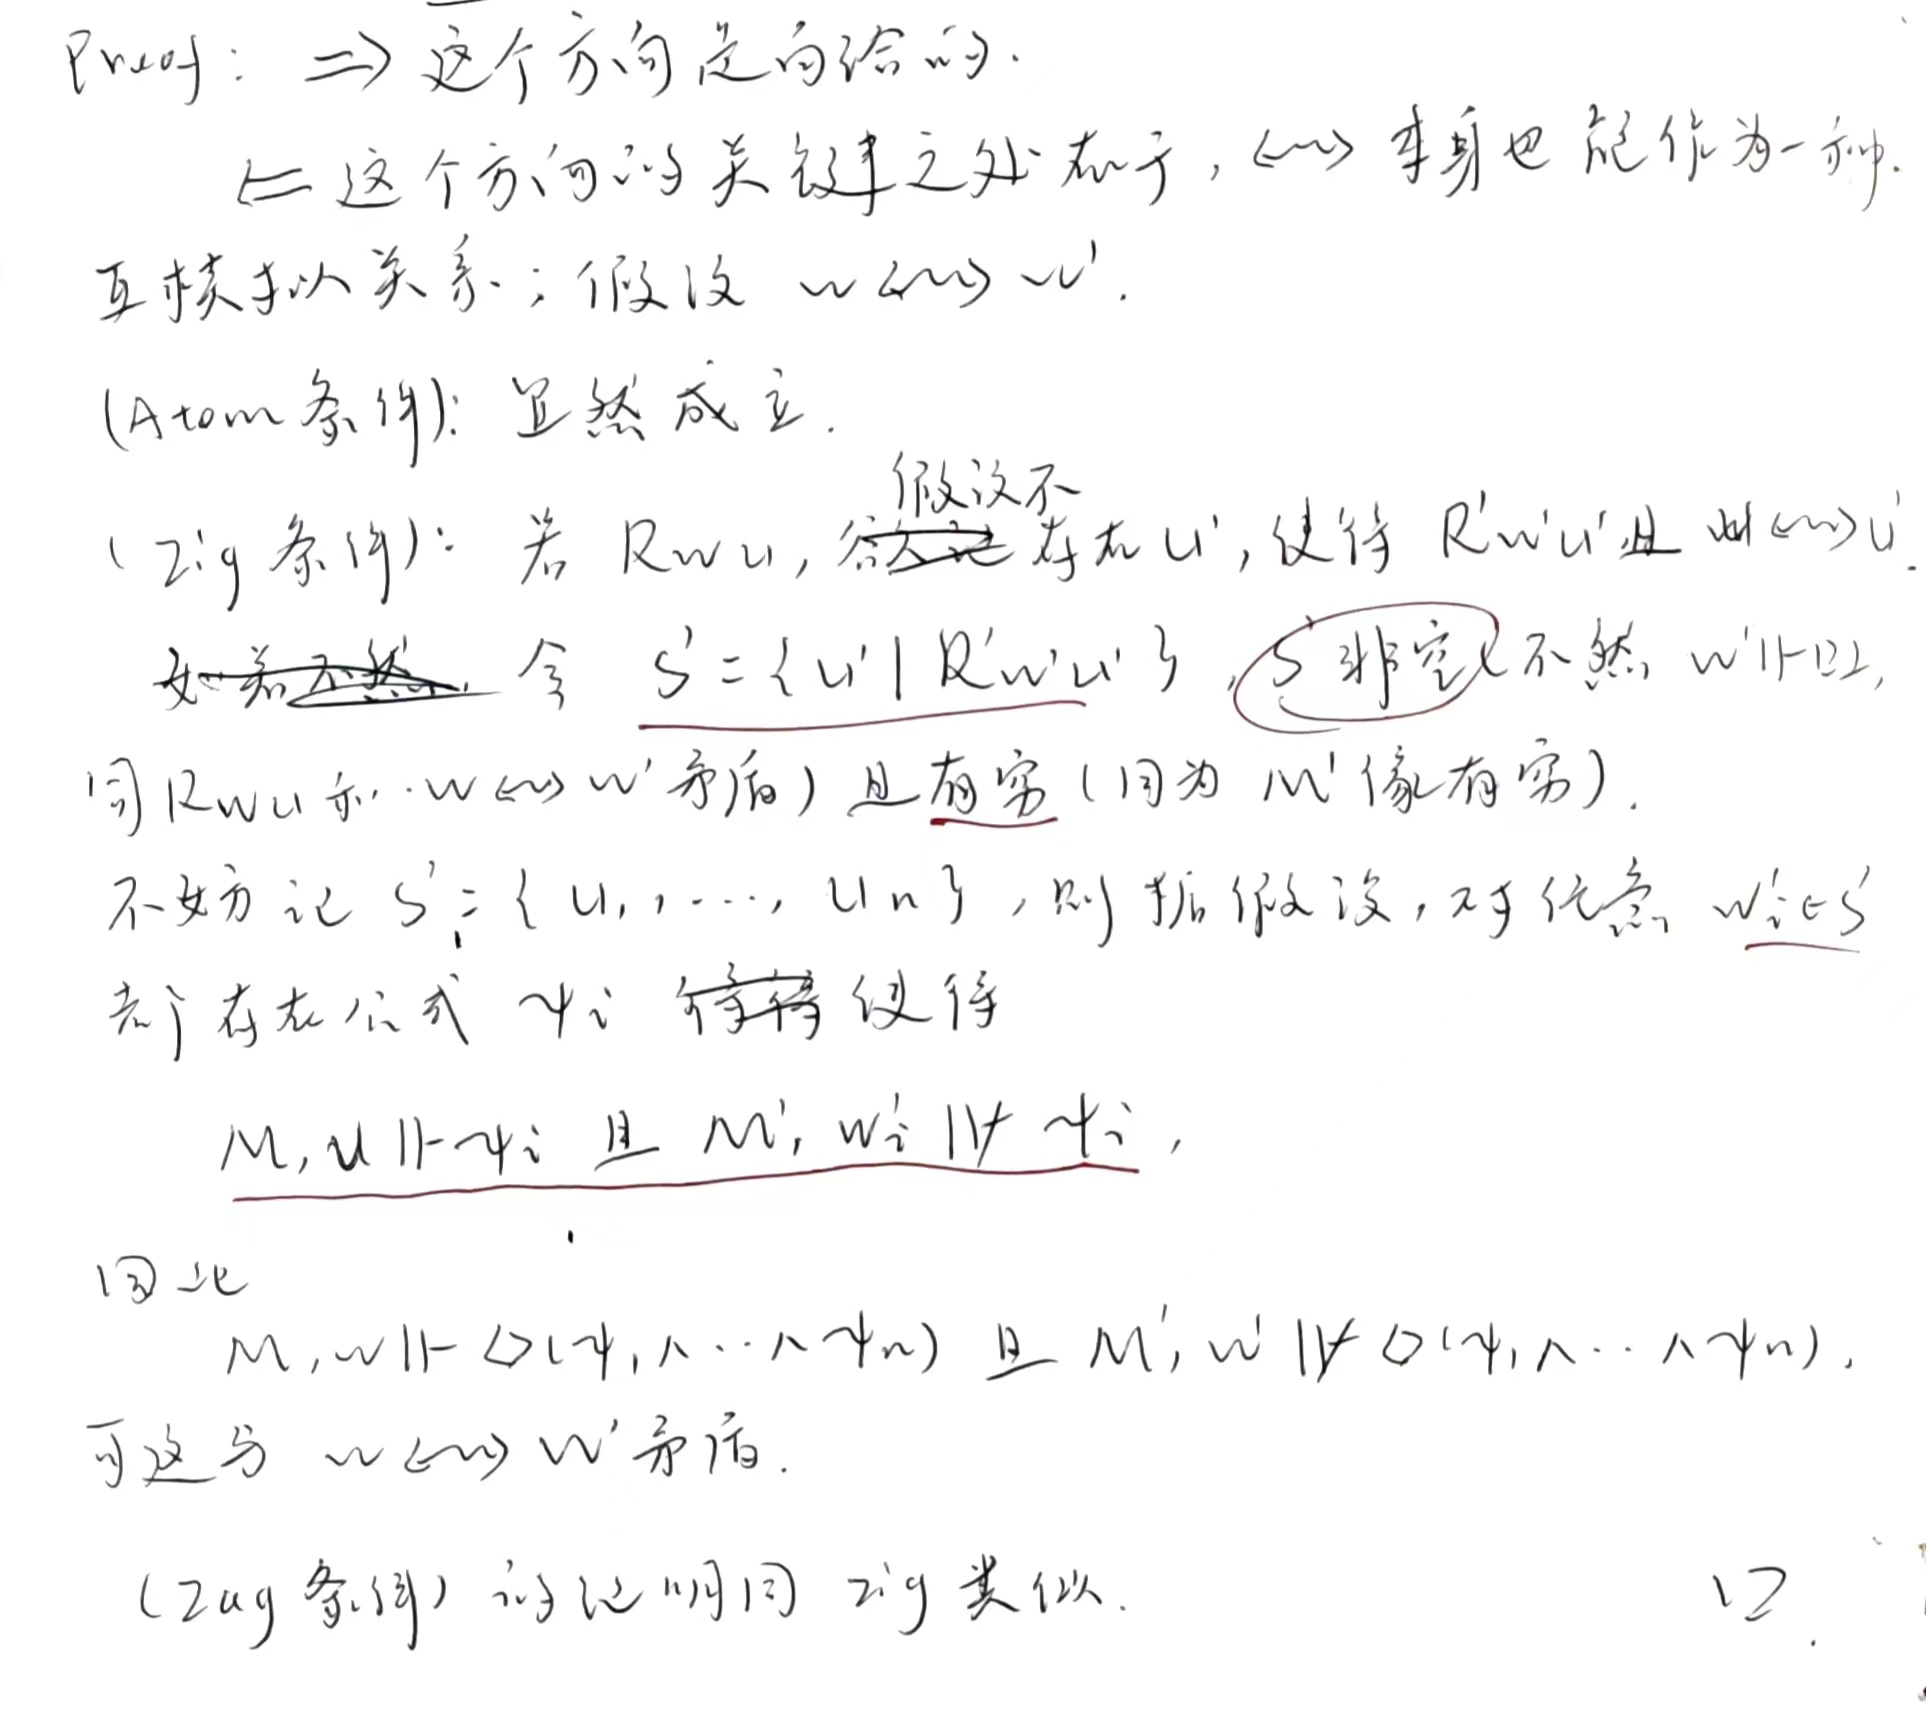 Proof: ⇒ 这个方向是白给的.
⇐ 这个方向的关键之处在于, ↭ 本身也能作为一种
互模拟关系; 假设 w ↭ w'.
(Atom 条件): 显然成立.
假设不
(Zig 条件): 若 Rwu, 存在 u', 使得 R'w'u' 且 u ↭ u'.
令 S' = {u' | R'w'u'}, S' 非空 (不然 w' ⊩ □⊥,
同 Rwu 和 w ↭ w' 矛盾) 且有穷 (因为 M' 像有穷).
不妨记 S' = {u₁, ...., uₙ}, 则据假设, 对任意 w'ᵢ ∈ S'
都存在公式 ψᵢ 使得
M, u ⊩ ψᵢ 且 M', w'ᵢ ⊮ ψᵢ,
因此
M, w ⊩ ◇(ψ₁ ∧ ... ∧ ψₙ) 且 M', w' ⊮ ◇(ψ₁ ∧ ... ∧ ψₙ),
可这与 w ↭ w' 矛盾.
(Zag 条件) 的证明同 Zig 类似. □